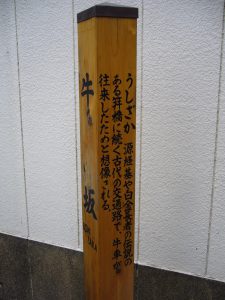 うしざか 源経基や白金長者の伝説の
ある笄橋に続く古代の交通路で、牛車が
往来したためと想像される。
牛坂
USHI
ZAKA